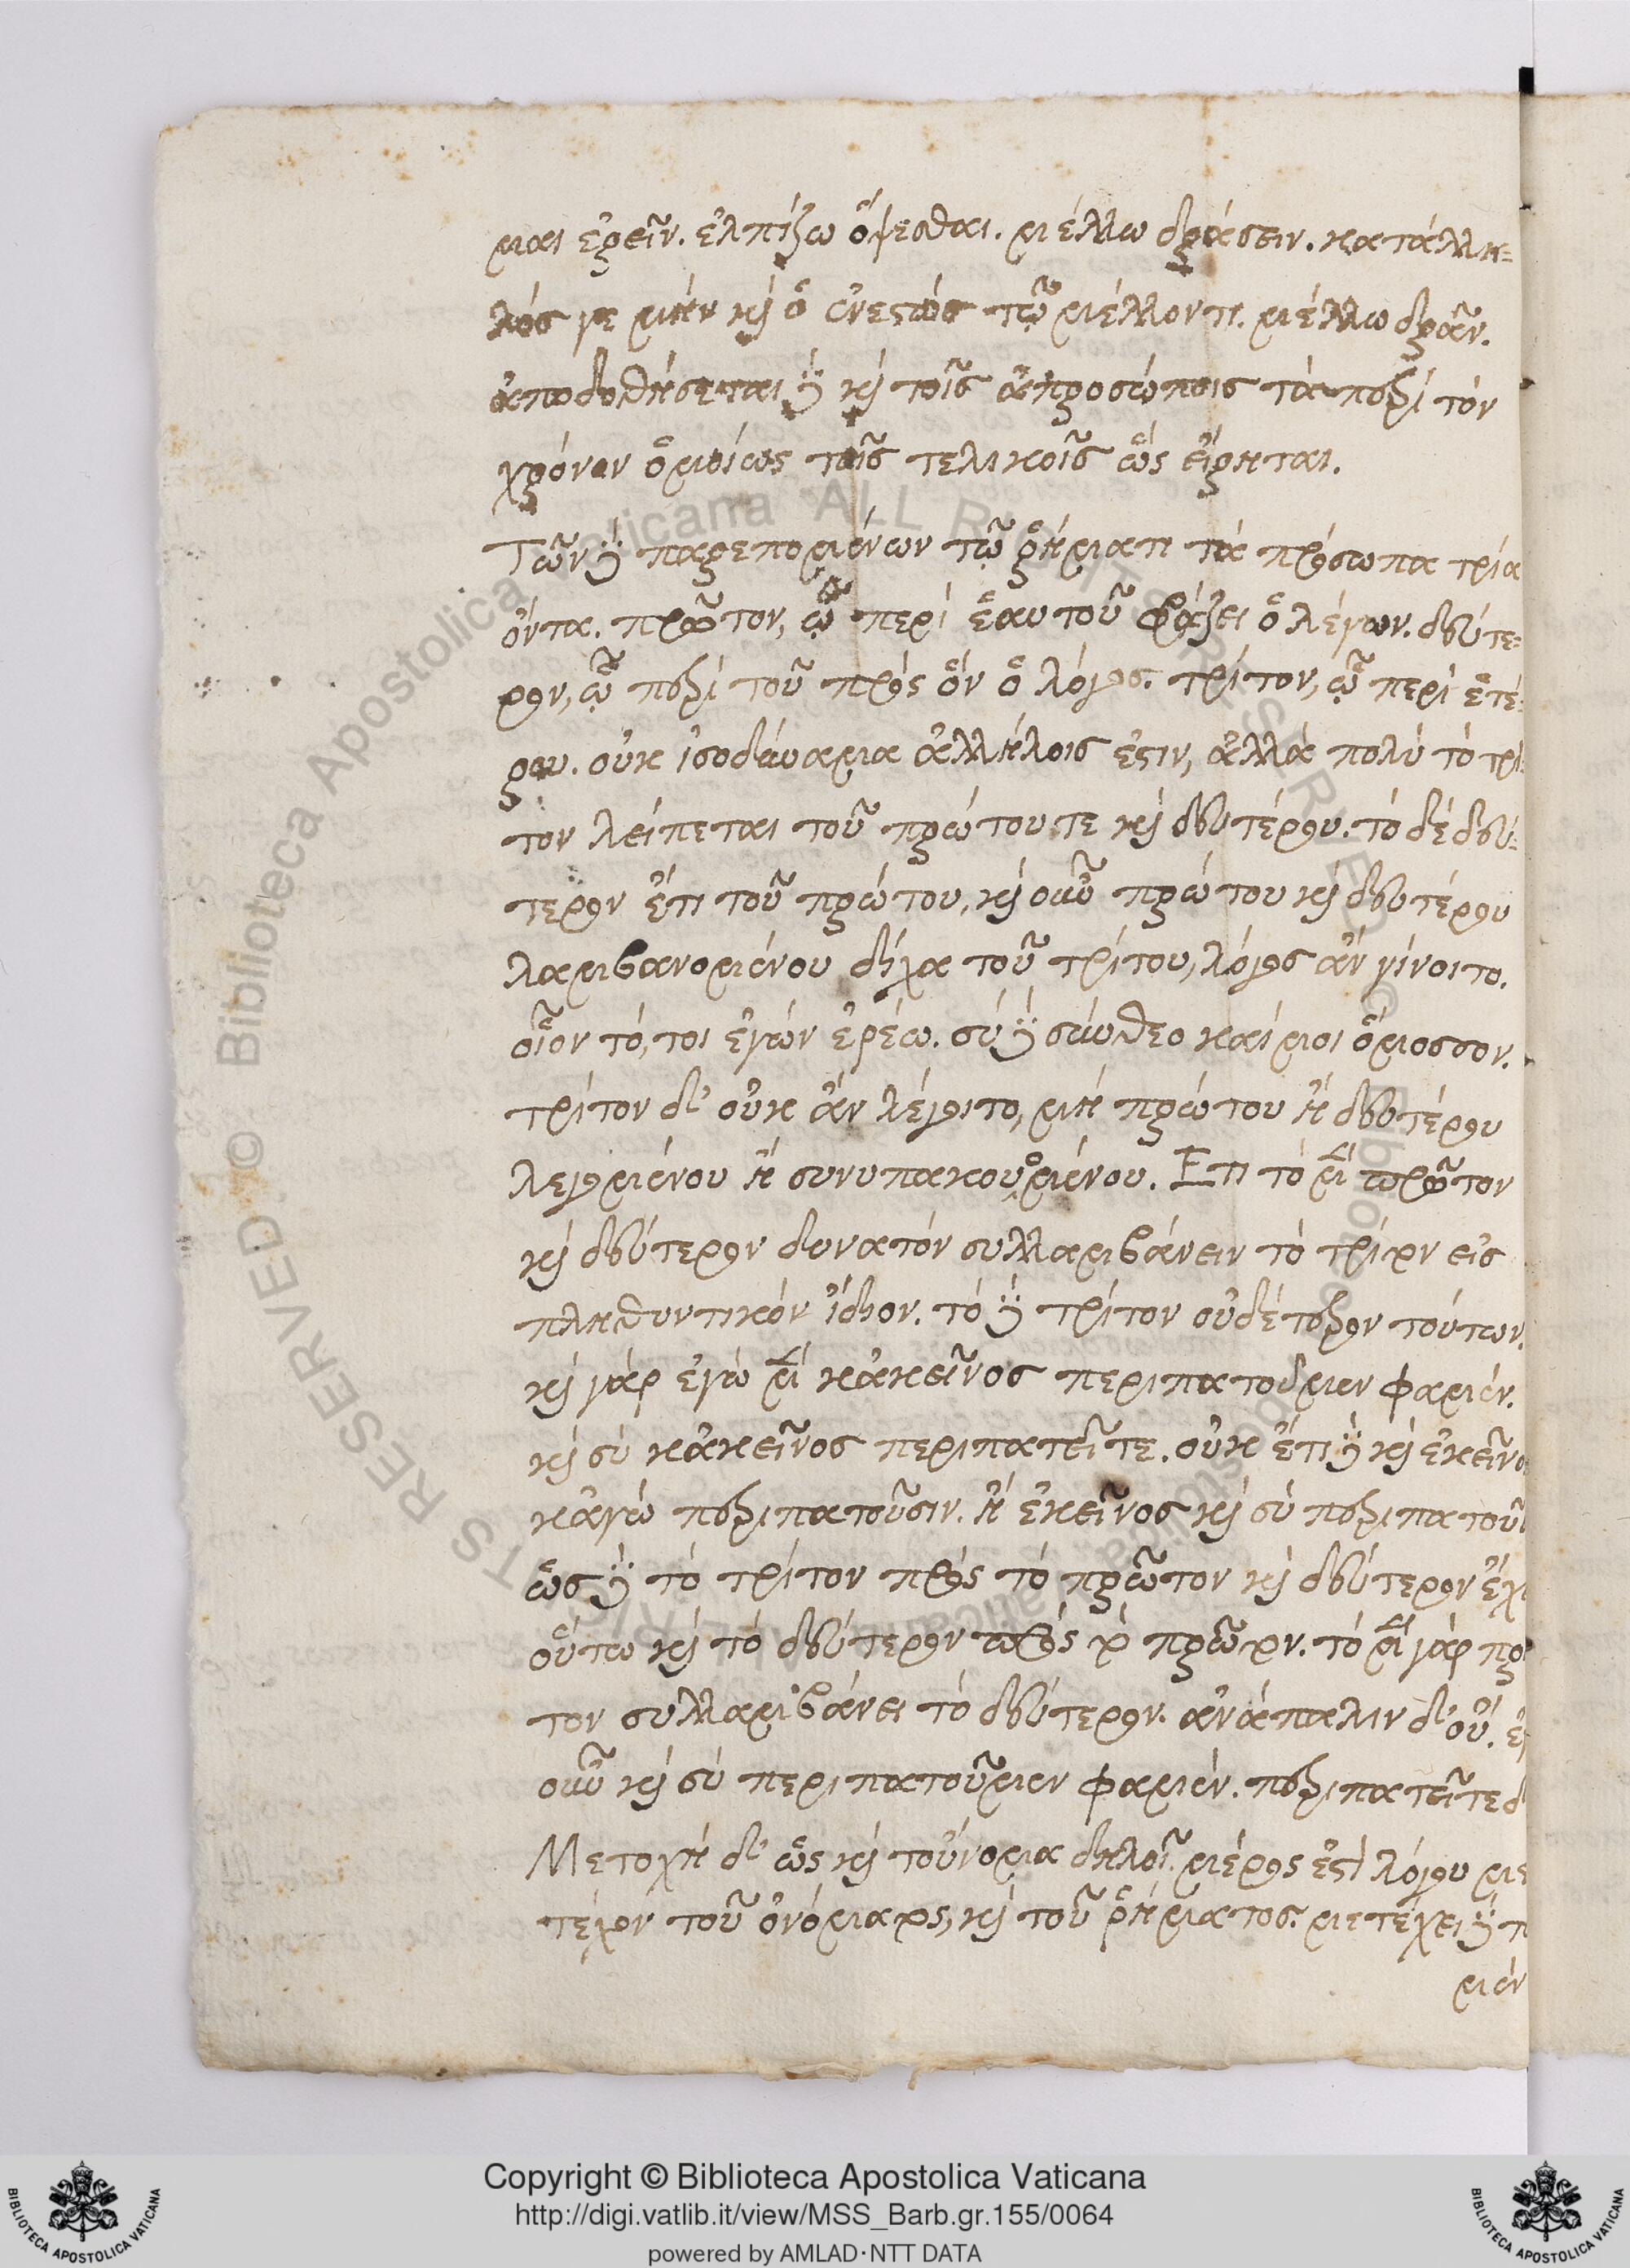 μαι ἐρεῖν. ἐλπίζω ὄψεσθαι. μέλλω δράσειν. κατάλλη-
λός γε μὴν κὶ ὁ ἐνεστώς τῷ μέλλοντι. μέλλω δρᾶν.
ἀποδοθήσεται δὲ κὶ τοῖς ἀπροσώποις τὰ περὶ τὸν
χρόνον ὁμοίως τοῖς τελικοῖς ὡς εἴρηται.
Τῶν δὲ παρεπομένων τῷ ῥήματι τὰ πρόσωπα τρία
ὄντα. πρῶτον, ᾧ περὶ ἑαυτοῦ φράζει ὁ λέγων. δεύτε-
ρον, ᾧ περὶ τοῦ πρὸς ὃν ὁ λόγος. τρίτον, ᾧ περὶ ἑτέ-
ρου. οὐκ ἰσοδύναμα ἀλλήλοις ἐστιν, ἀλλὰ πολὺ τὸ τρί
τον λείπεται τοῦ πρώτου τε κὶ δευτέρου. τὸ δὲ δεύ-
τερον ἔτι τοῦ πρώτου, κὶ οὖν πρώτου κὶ δευτέρου
λαμβανομένου δίχα τοῦ τρίτου, λόγος ἂν γίνοιτο.
οἷον τό, τοι ἐγὼν ἐρέω. σὺ δὲ σύνθεο καί μοι ὄμοσσον.
τρίτον δ' οὐκ ἂν λέγοιτο, μὴ πρώτου ἢ δευτέρου
λεγομένου ἢ συνυπακουομένου. Ἔτι τὸ μὲν πρῶτον
κὶ δεύτερον δυνατὸν συλλαμβάνειν τὸ τρίτον εἰς
πληθυντικὸν ἴδιον. τὸ δὲ τρίτον οὐδέτερον τούτων.
κὶ γὰρ ἐγὼ μὲν κἀκεῖνος περιπατοῦμεν φαμέν.
κὶ σὺ κἀκεῖνος περιπατεῖτε. οὐκ ἔτι δὲ κὶ ἐκεῖνο
κἀγὼ περιπατοῦσιν. ἢ ἐκεῖνος κὶ σὺ περιπατοῦ
ὡς δὲ τὸ τρίτον πρὸς τὸ πρῶτον κὶ δεύτερον ἔχ
οὕτω κὶ τὸ δεύτερον πρὸς τὸ πρῶτον. τὸ μὲν γὰρ πρ
τον συλλαμβάνει τὸ δεύτερον. ἀνάπαλιν δ' οὔ. ἐγ
οὖν κὶ σὺ περιπατοῦμεν φαμέν. περιπατεῖτε δ
Μετοχὴ δ' ὡς κὶ τοὔνομα δηλοῖ. μέρος ἐστὶ λόγου με
τέχον τοῦ ὀνόματος, κὶ τοῦ ῥήματος. μετέχει δὲ τ
μέν
Copyright © Biblioteca Apostolica Vaticana
http://digi.vatlib.it/view/MSS_Barb.gr.155/0064
powered by AMLAD·NTT DATA